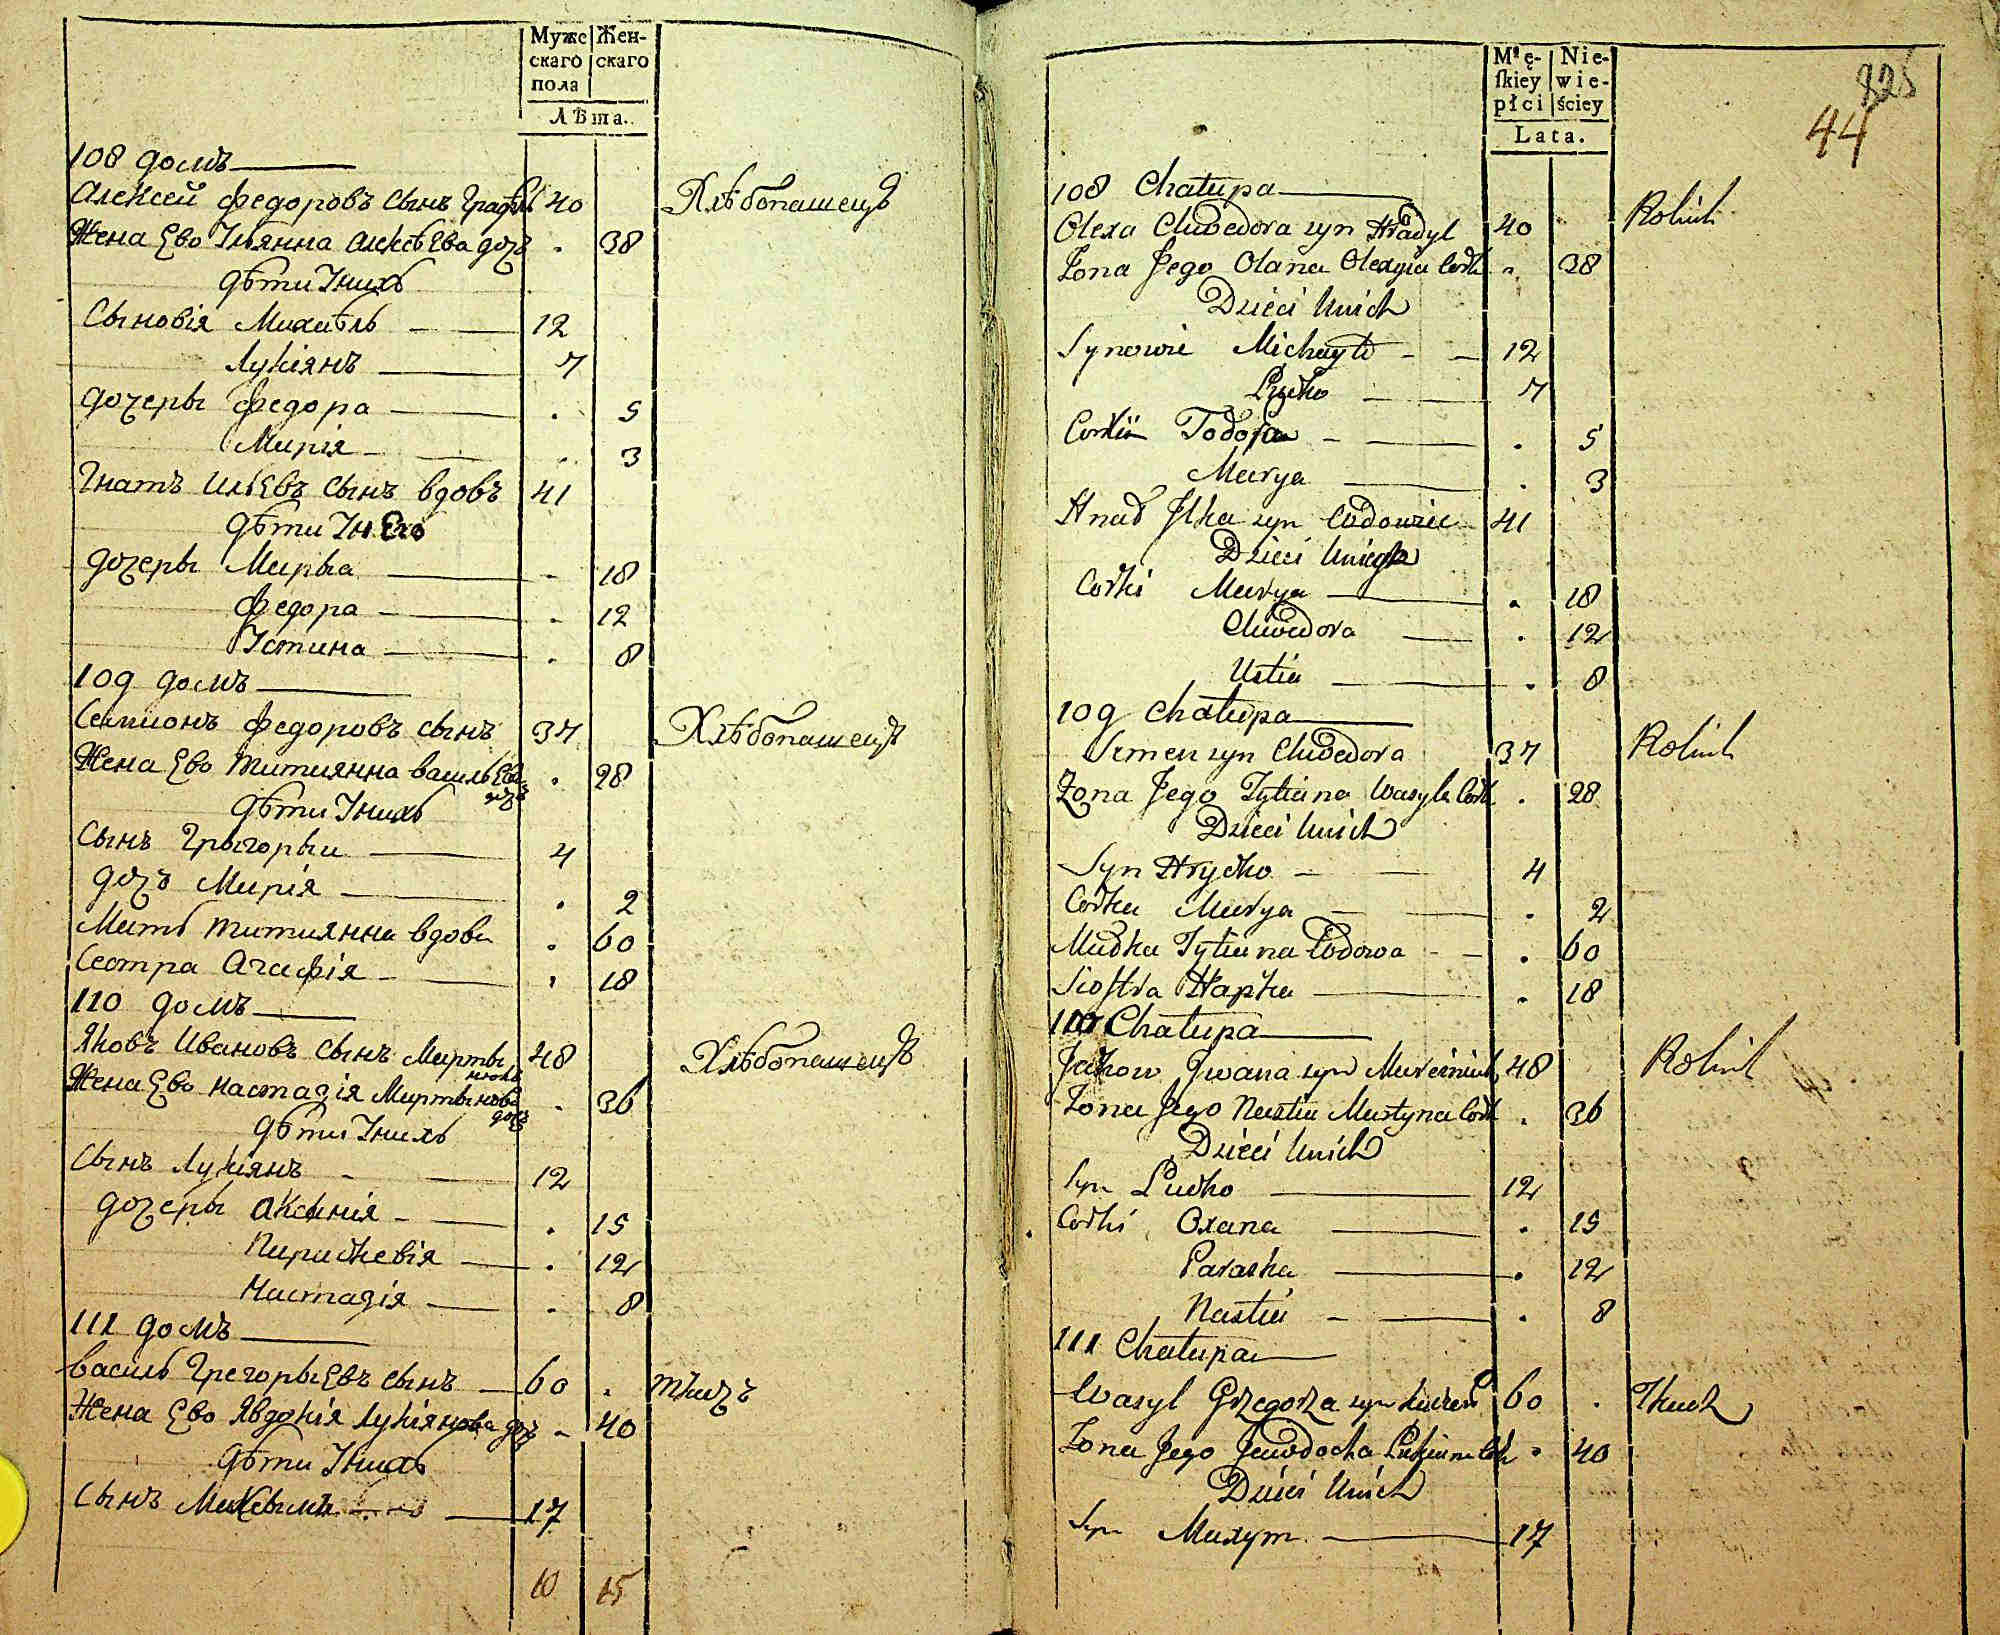 Муже Жен-
скаго скаго
пола
Лѣта.
108 домъ
Алексей федоровъ сынъ 40 Хлѣбопашецъ
Жена Ево Ульянна Алексѣева доч . 38
дѣти Ународ Уних
Сыновія Михаѣль 12
Лукіянъ 7
дочеры федора . 5
Марія . 3
Игнатъ Ильевъ сынъ вдовъ 41
дѣти Унего
дочеры Марыа - 18
федора . 12
Устина . 8
109 домъ
Семионъ федоровъ сынъ 37 Хлѣбопашецъ
Жена Ево татиянна василева . 28
доч
дѣти Унихъ
Сынъ Григорыи 4
дочъ Марія . 2
Мать татиянна вдова . 60
Сестра Агафія . 18
110 домъ
Яковъ Ивановъ сынъ Марты 48 Хлѣбопашецъ
нюкъ
Жена Ево настазія Мартынова . 36
доч
дѣти Унихъ
Сынъ Лукіянъ 12
дочеры Аксинія . 15
Параскевія . 12
Настазія . 8
111 домъ
василь Григорыевъ сынъ 60 . ткачъ
Жена Ево Явдокія Лукіянова доч - 40
дѣти Унихъ
Сынъ Максымъ 17
10 15
Mę- Nie-
skiey wie-
płci ściey
Lata.
825
44
108 Chałupa
Olexa Chwedora syn Hradyl 40 Rolnik
Żona Jego Olana Olexyia Cork . 38
Dzieci Unich
Synowie Michayło 12
Lucko 7
Corki Todora . 5
Marya . 3
Hnad Jlka syn Wdowiec 41
Dzieci Uniego
Corki Marya . 18
Chwedora . 12
Ustia . 8
109 Chałupa
Semen syn Chwedora 37 Rolnik
Żona Jego Tytiana Wasyla Cork . 28
Dzieci Unich
Syn Hrycko 4
Corka Marya . 2
Matka Tytiana Wdowa . 60
Siostra Hapka . 18
110 Chałupa
Jakow Jwana syn 48 Rolnik
Żona Jego Nastia Martyna Cork . 36
Dzieci Unich
Syn Lucko 12
Corki Oxana . 15
Paraska . 12
Nastia . 8
111 Chałupa
Wasyl Grzegorza syn 60 . Tkacz
Żona Jego Jewdocha Lukiana Cork . 40
Dzieci Unich
Syn Maxym 17